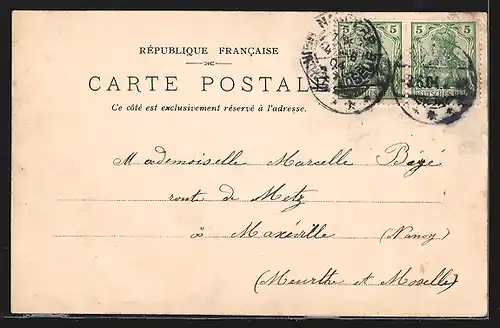 RÉPUBLIQUE FRANÇAISE
5 5
CARTE POSTALE
Ce côté est exclusivement réservé à l'adresse.
Mademoiselle Marcelle
route de Metz
à Maxéville (Nancy)
(Meurthe et Moselle)